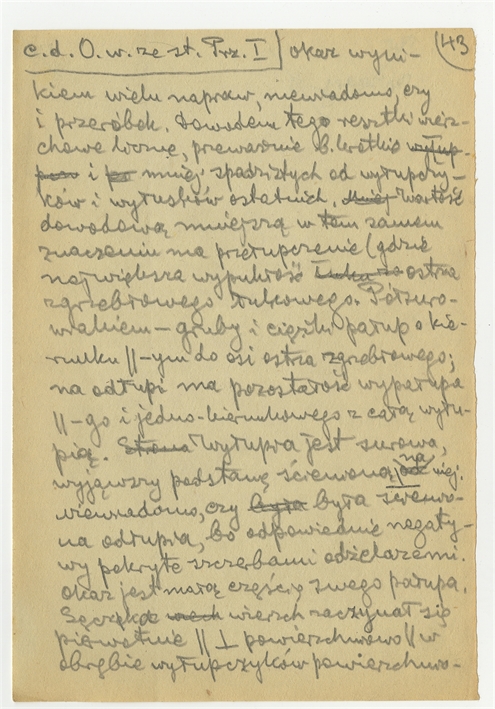 c.d. O. w. ze st. Prz. I okaz wyni- 43
kiem wielu napraw, niewiadomo, czy
i przeróbek. Dowodem tego resztki wierz-
chowe liczne, przeważnie b. krótkie
i mniej spadzistych od wyłupczy-
ków i wyłusków ostatnich. Wartość
dowodową mniejszą w tem samem
znaczeniu ma przełupczenie (gdzie
największa wypukłość ostrza
zgrzebłowego łukowego. Półsuro-
wiakiem – gruby i ciężki połup o kie-
runku ||-ym do osi ostrza zgrzebłowego;
na odłupi ma pozostałość wypałupa
||-go i jedno-kierunkowego z całą wyłu-
pią. Wyłupia jest surowa,
wyjąwszy podstawę ścienioną na niej;
niewiadomo, czy była ścienio-
na odłupia, bo odpowiednie negaty-
wy pokryte szczerbami odzielarzemi.
Okaz jest małą częścią swego połupa.
wierzch zaczynał się
pierwotnie || ⊥ powierzchniowo || w
obrębie wyłupczyków powierzchnio-